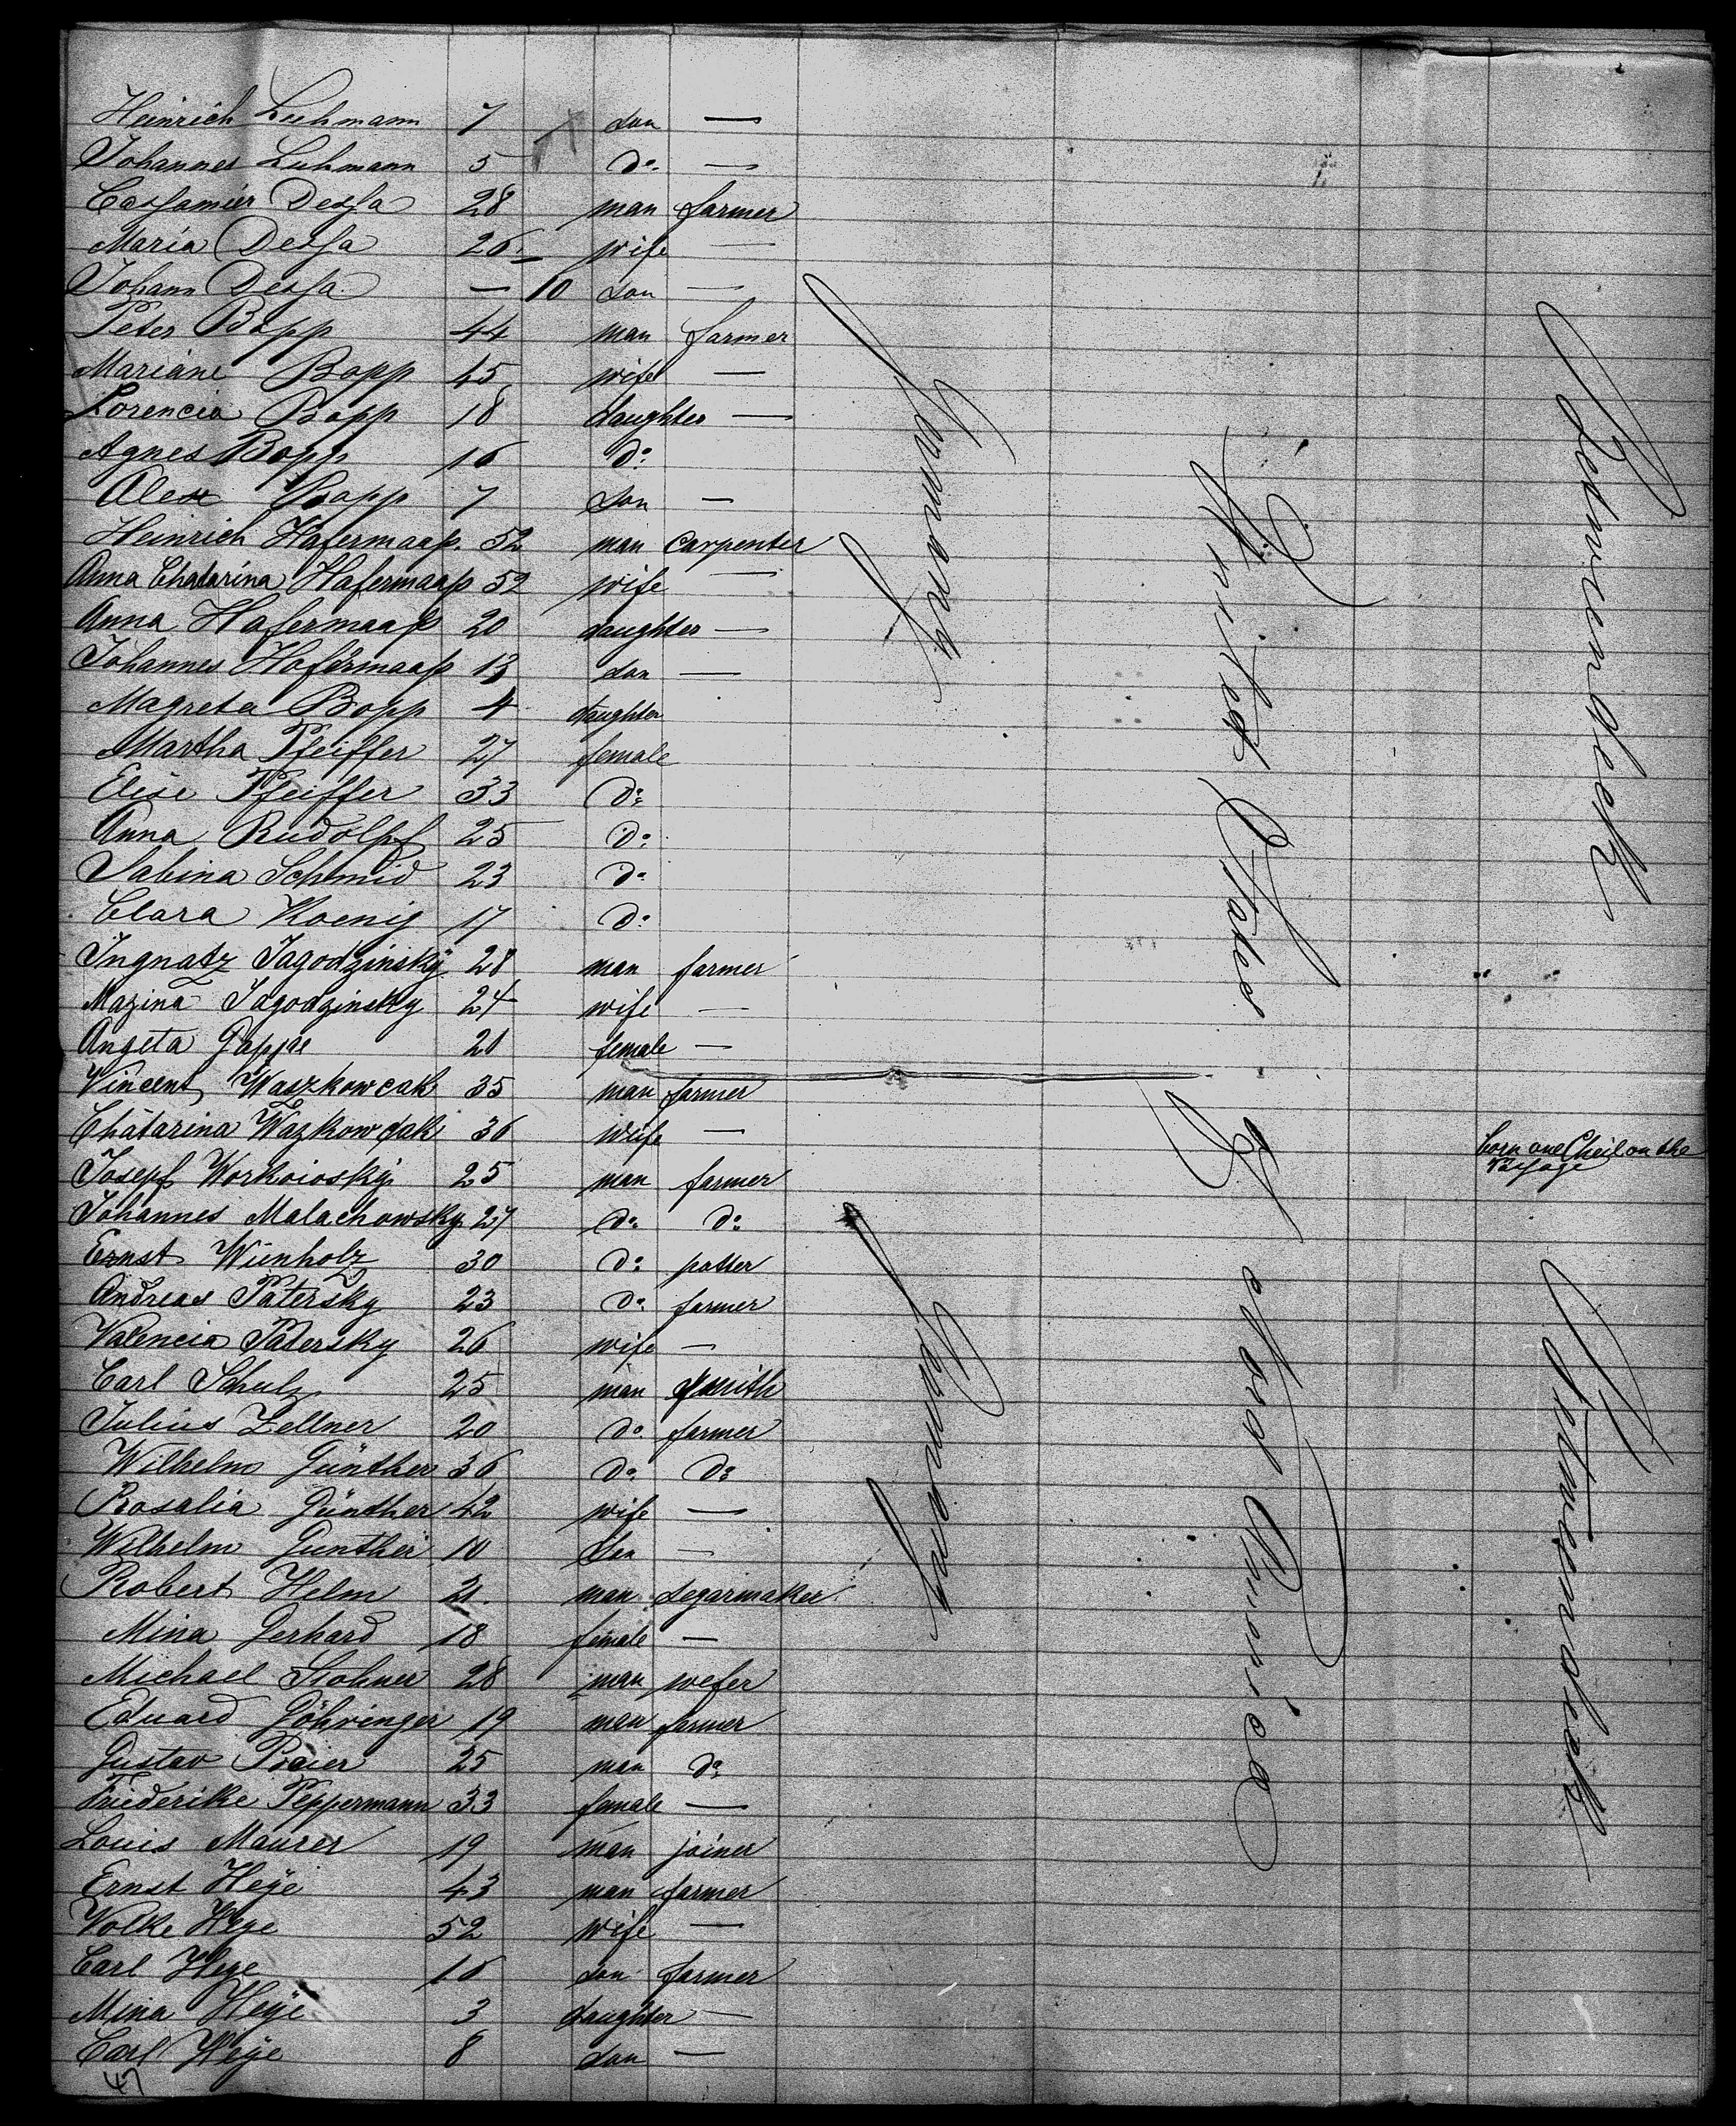 Heinrich Luhmann 7 son —
Johannes Luhmann 5 do. —
Cassamier Dessa 28 man farmer
Maria Dessa 26 wife —
Johann Dessa — 10 son —
Peter Bopp 44 man farmer
Mariane Bopp 45 wife —
Lorencia Bopp 18 daughter —
Agnes Bopp 16 do:
Alex Bopp 7 son —
Heinrich Hafermaas. 52 man carpenter
Anna Chatarina Hafermaas 52 wife —
Anna Hafermaas 20 daughter —
Johannes Hafermaas 13 son —
Magreta Bopp 4 daughter
Martha Pfeiffer 27 female
Elise Pfeiffer 33 do:
Anna Rudolpf 25 do:
Sabina Schmid 23 do:
Clara Koenig 17 do:
Ingnatz Jagodzinsky 28 man farmer
Mazina Jagodzinsky 24 wife —
Angeta 21 female —
Vincent Waszkowcak 35 man farmer
Chatarina Wazkowcak 36 wife — born one Cheil on the
Voyage
Josepf Workoiosky 25 man farmer
Johannes Malachowsky 27 do: do:
Ernst Wienholz 30 do: potter
Andreas Patersky 23 do: farmer
Valencia Patersky 26 wife —
Carl Schulz 25 man smith
Julius Zellner 20 do: farmer
Wilhelm Günther 36 do: do:
Rosalia Günther 42 wife —
Wilhelm Günther 10 son —
Robert Helm 21. man segarmaker
Mina Gerhard 18 female —
Michael Stohner 28 man wefer
Eduard Göhringer 19 man farmer
Gustav Baier 25 man do:
Friederike Peppermann 33 female —
Louis Maurer 19 man joiner
Ernst Heye 43 man farmer
Volke Heye 52 wife —
Carl Heye 16 son farmer
Mina Heye 3 daughter —
Carl Heye 8 son —
47
Germany
Germany
United States
of Nord America
Betweendeck
Betweendeck